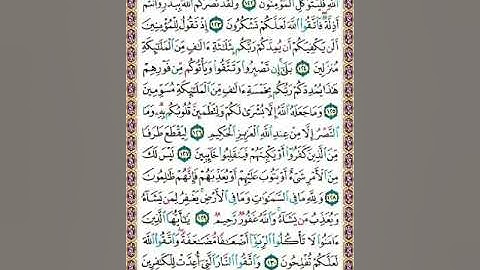 ٱللَّهِ فَلْيَتَوَكَّلِ ٱلْمُؤْمِنُونَ ١٢٢ وَلَقَدْ نَصَرَكُمُ ٱللَّهُ بِبَدْرٍ وَأَنتُمْ
أَذِلَّةٌ فَٱتَّقُوا۟ ٱللَّهَ لَعَلَّكُمْ تَشْكُرُونَ ١٢٣ إِذْ تَقُولُ لِلْمُؤْمِنِينَ
أَلَن يَكْفِيَكُمْ أَن يُمِدَّكُمْ رَبُّكُم بِثَلَـٰثَةِ ءَالَـٰفٍ مِّنَ ٱلْمَلَـٰٓئِكَةِ
مُنزَلِينَ ١٢٤ بَلَىٰٓ إِن تَصْبِرُوا۟ وَتَتَّقُوا۟ وَيَأْتُوكُم مِّن فَوْرِهِمْ
هَـٰذَا يُمْدِدْكُمْ رَبُّكُم بِخَمْسَةِ ءَالَـٰفٍ مِّنَ ٱلْمَلَـٰٓئِكَةِ مُسَوِّمِينَ
١٢٥ وَمَا جَعَلَهُ ٱللَّهُ إِلَّا بُشْرَىٰ لَكُمْ وَلِتَطْمَئِنَّ قُلُوبُكُم بِهِۦ وَمَا
ٱلنَّصْرُ إِلَّا مِنْ عِندِ ٱللَّهِ ٱلْعَزِيزِ ٱلْحَكِيمِ ١٢٦ لِيَقْطَعَ طَرَفًا
مِّنَ ٱلَّذِينَ كَفَرُوٓا۟ أَوْ يَكْبِتَهُمْ فَيَنقَلِبُوا۟ خَآئِبِينَ ١٢٧ لَيْسَ لَكَ
مِنَ ٱلْأَمْرِ شَىْءٌ أَوْ يَتُوبَ عَلَيْهِمْ أَوْ يُعَذِّبَهُمْ فَإِنَّهُمْ ظَـٰلِمُونَ
١٢٨ وَلِلَّهِ مَا فِى ٱلسَّمَـٰوَٰتِ وَمَا فِى ٱلْأَرْضِ يَغْفِرُ لِمَن يَشَآءُ
وَيُعَذِّبُ مَن يَشَآءُ وَٱللَّهُ غَفُورٌ رَّحِيمٌ ١٢٩ يَـٰٓأَيُّهَا ٱلَّذِينَ
ءَامَنُوا۟ لَا تَأْكُلُوا۟ ٱلرِّبَوٰٓا۟ أَضْعَـٰفًا مُّضَـٰعَفَةً وَٱتَّقُوا۟ ٱللَّهَ
لَعَلَّكُمْ تُفْلِحُونَ ١٣٠ وَٱتَّقُوا۟ ٱلنَّارَ ٱلَّتِىٓ أُعِدَّتْ لِلْكَـٰفِرِينَ